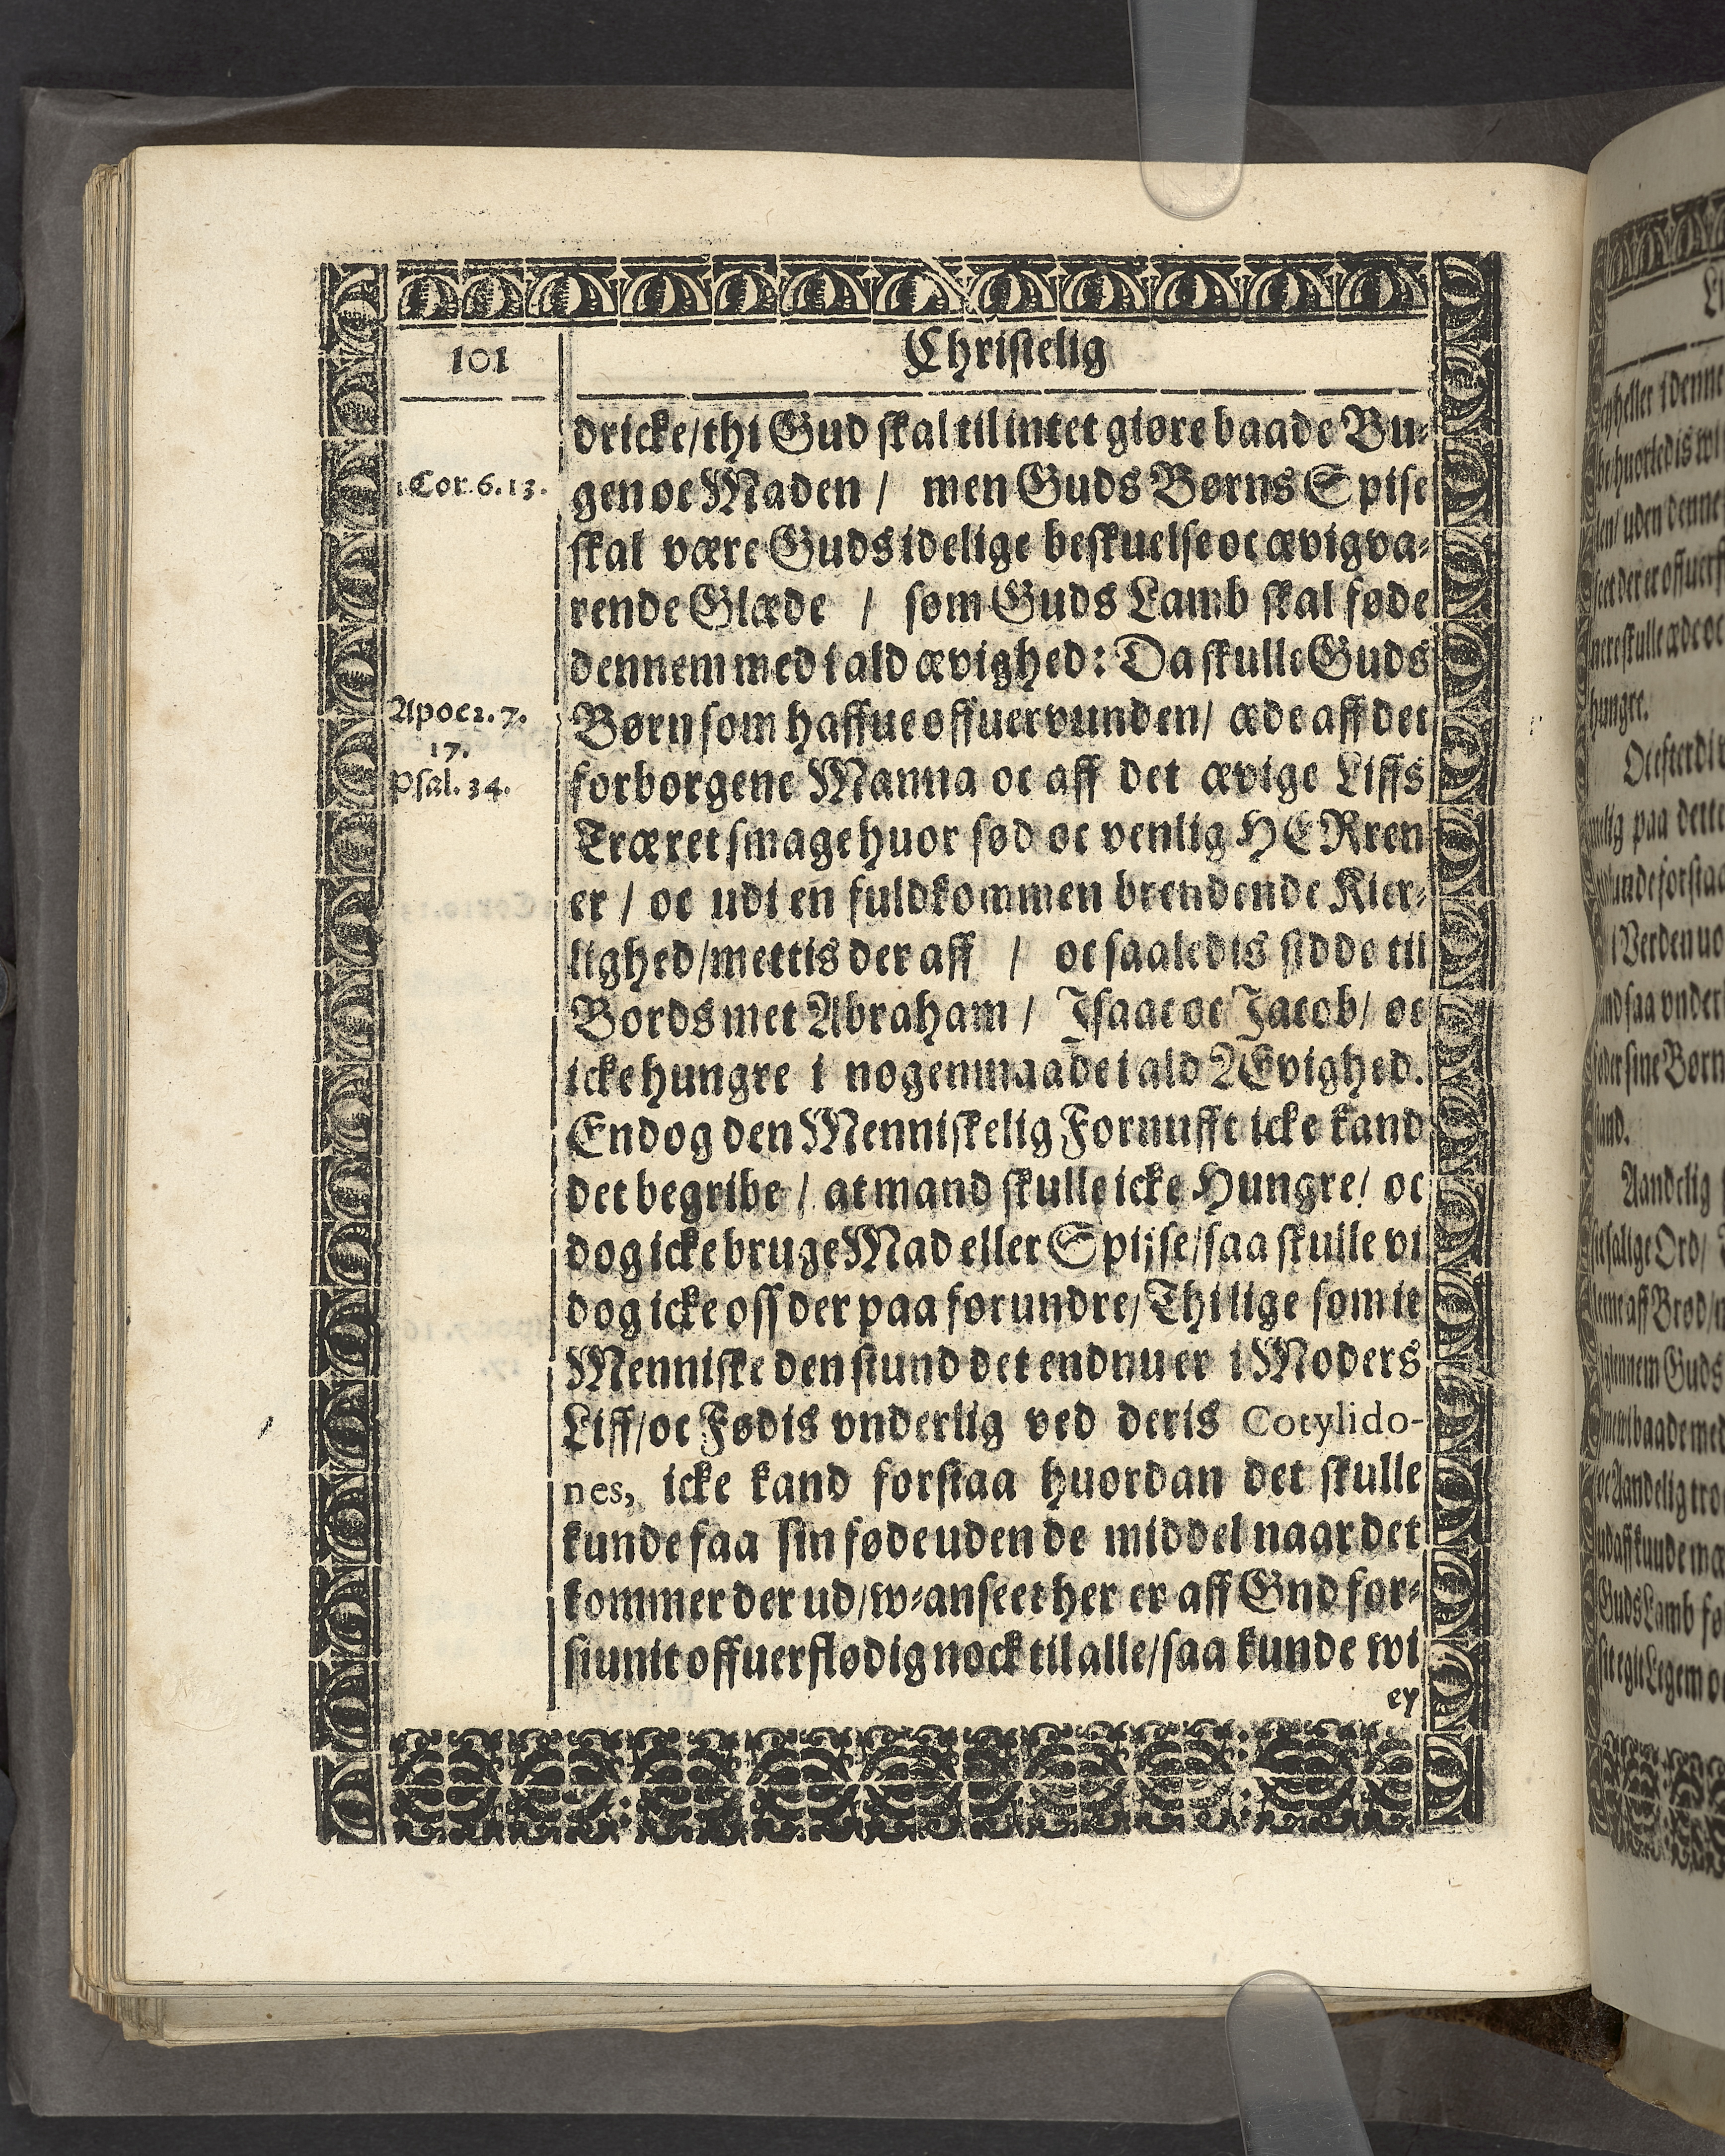 101
Christelig
dricke/thi Gud skal til intet giøre baade Bu-
1 Cor. 6. 13.
gen oc Maden / men Guds Børns Spise
skal være Guds idelige beskuelse oc ævigva-
rende Glæde / som Guds Lamb skal føde
dennem med i ald ævighed: Da skulle Guds
Apoc 2. 7.
17.
Psal. 34.
Børn som haffue offuervunden/ æde aff det
forborgene Manna oc aff det ævige Liffs
Træ ret smage huor sød oc venlig HERren
er / oc udi en fuldkommen brendende Kier-
lighed/mettis der aff / oc saaledis sidde til
Bords met Abraham / Isaac oc Jacob/ oc
icke hungre i nogenmaade i ald Ævighed.
Endog den Menniskelig Fornufft icke kand
det begribe / at mand skulle icke Hungre/ oc
dog icke bruge Mad eller Spijse/saa skulle vi
dog icke oss der paa forundre/Thi lige som it
Menniske den stund det endnu er i Moders
Liff/oc Fødis vnderlig ved deris Cotylido-
nes, icke kand forstaa huordan det skulle
kunde faa sin føde uden de middel naar det
kommer der ud/w-anseet her er aff Gnd for-
siunit offuerflødig nock til alle/saa kunde wi
ey